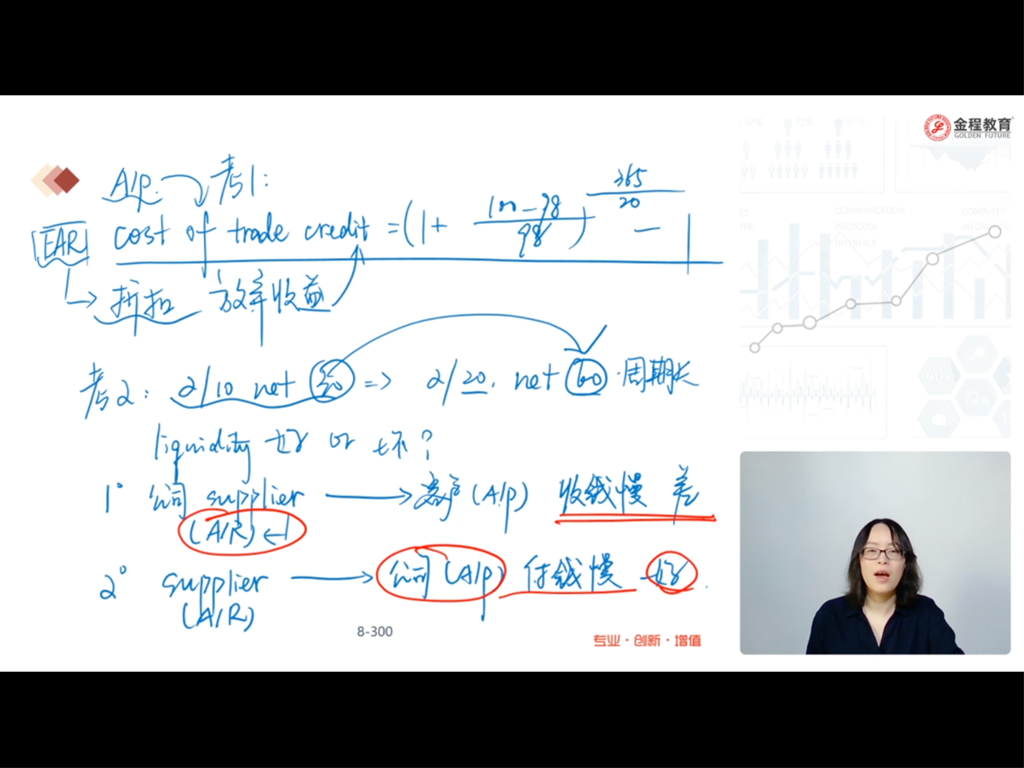 金程教育
GOLDEN FUTURE
A/p. 考1:
EAR cost of trade credit = (1 + (100-98)/98)^(365/20) - 1
→ 折扣 放弃收益
考2: 2/10 net 30 => 2/20. net 60. 周期长
liquidity 好 or 坏?
1° 公司 supplier → 客户 (A/p) 收钱慢 差
(A/R) ←
2° supplier → 公司 (A/p) 付钱慢 好
(A/R)
8-300
专业·创新·增值